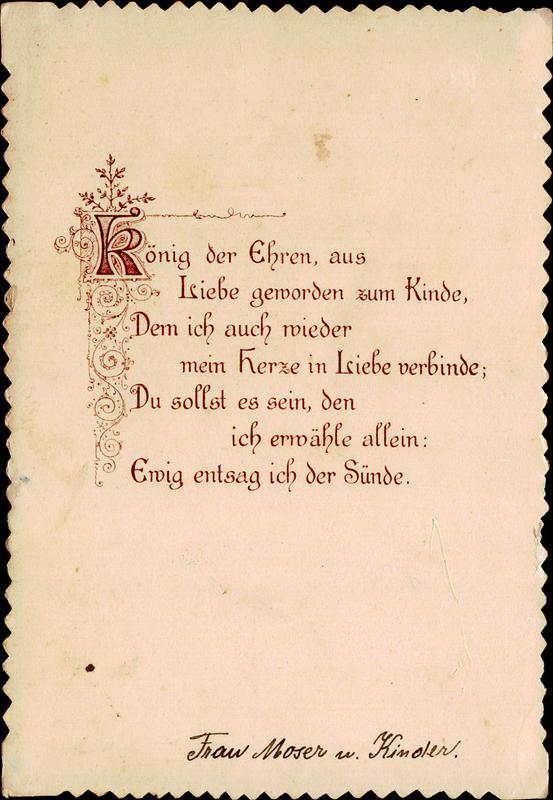 König der Ehren, aus
Liebe geworden zum Kinde,
Dem ich auch wieder
mein Herze in Liebe verbinde;
Du sollst es sein, den
ich erwähle allein:
Ewig entsag ich der Sünde.
Frau Moser u. Kinder.